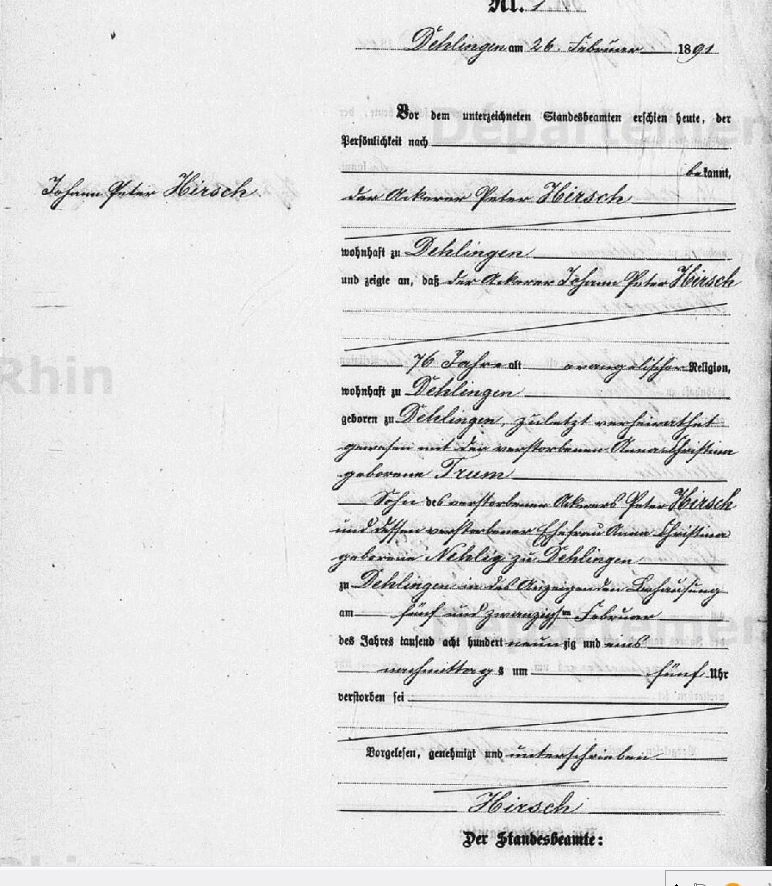 Nr. 1.
Dehlingen am 26. Februar 1891
Vor dem unterzeichneten Standesbeamten erschien heute, der
Persönlichkeit nach
bekannt,
Johann Peter Hirsch.
der Ackerer Peter Hirsch
wohnhaft zu Dehlingen
und zeigte an, daß der Ackerer Johann Peter Hirsch
76 Jahre alt evangelischer Religion,
wohnhaft zu Dehlingen
geboren zu Dehlingen, zuletzt verheirathet
gewesen mit der verstorbenen Anna Christina
geborene Trum
Sohn des verstorbenen Ackerers Peter Hirsch
und dessen verstorbener Ehefrau Anna Christina
geborene Nehlig zu Dehlingen
zu Dehlingen in des Anzeigenden Behausung
am fünf und zwanzigsten Februar
des Jahres tausend acht hundert neunzig und eins
nachmittags um fünf Uhr
verstorben sei
Vorgelesen, genehmigt und unterschrieben
Hirsch
Der Standesbeamte:
Rhin